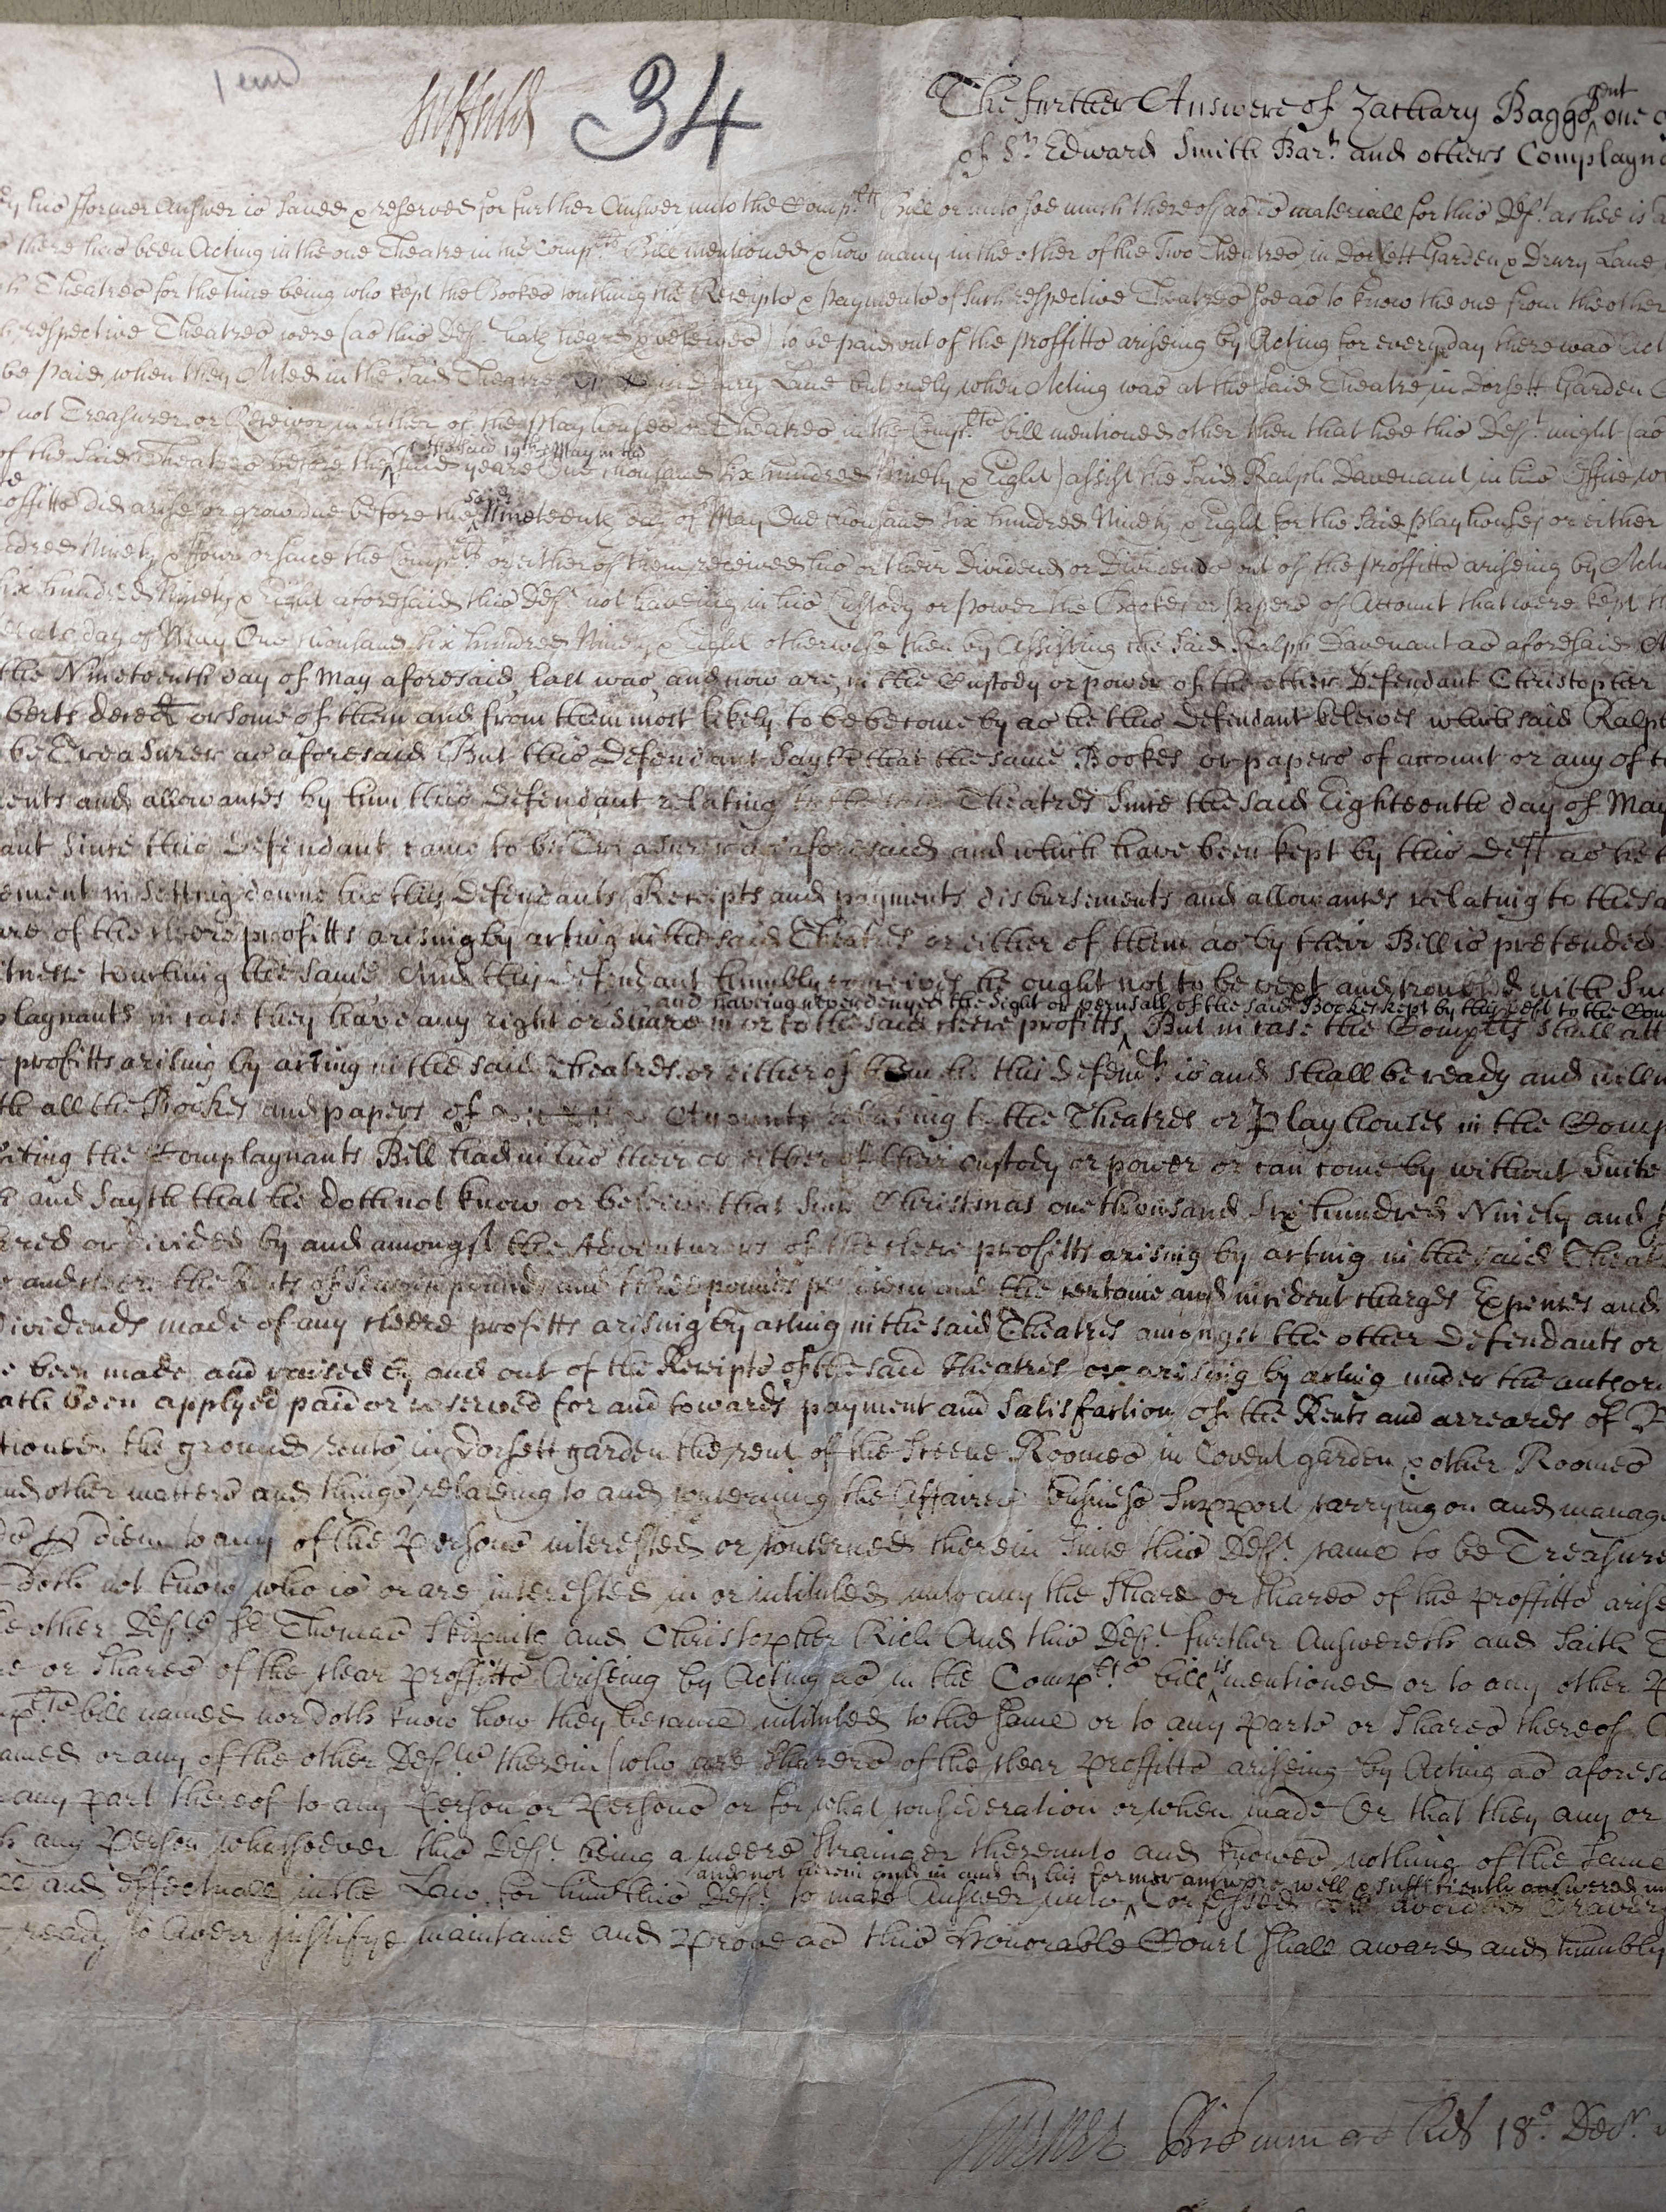 34
The further Answere of Zachary Baggs gent one o
of Sr. Edward Smith Bart. and others Complayna
his fformer Answer is saved & reserved for further Answer unto the Compltts Bill or unto soe much thereof as is materiall for this Deft. as hee is a
there has been Acting in the one Theatre in the Complts Bill mentioned & how many in the other of the Two Theatres in Dorsett Garden & Drury Lane
Theatres for the time being who kept the Bookes touching the Receipts & payments of such respective Theatres soe as to know the one from the other
respective Theatres were (as this Deft. hath heard & beleives) to be paid out of the proffitts ariseing by Acting for every day there was Act
be paid when they Acted in the said Theatre in Drury Lane but onely when Acting was at the said Theatre in Dorsett Garden
not Treasurer or Receivor in either of the Playhouses or Theatres in the Complts bill mentioned other then that hee this Deft. might (as
of the said Theatres before the said 19th of May in the yeare One thousand six hundred Ninety & Eight) assist the said Ralph Davenant in his Office
offitts did arise or grow due before the said Nineteenth day of May One thousand six hundred Ninety & Eight for the said playhouses or either
dred Ninety & ffour or since the Complts or either of them received his or their Dividend or Dividends out of the proffitts ariseing by Acti
six hundred Ninety & Eight aforesaid this Deft. not haveing in his Custody or power the Bookes or papers of Account that were kept
day of May One thousand six hundred Ninety & Eight otherwise then by Assisting the said Ralph Davenant as aforesaid
the Nineteenth day of May aforesaid, last was, and now are, in the Custody or power of the other Defendant Christopher
berts decd. or some of them and from them most likely to be become by as he this Defendant beleives which said Ralph
be Treasurer as aforesaid But this Defendant Sayth that the same Bookes or papers of account or any of t
ents and allowances by him this Defendant relating to the said Theatres Since the said Eighteenth day of May
ant Since this Defendant came to be Treasurer as aforesaid and which have been kept by this Deft. as he
ement in setting downe his this Defendants Receipts and payments disbursements and allowances relating to the sa
are of the cleere profitts arising by acting in the said Theatres or either of them as by their Bill is pretended
itness touching the same And this Defendant humbly conceives he ought not to be vext and troubled with Su
and having never denyed the Sight or perusall of the said Bookes kept by this Deft to the Com
playnants in case they have any right or Share in or to the said cleere profitts But in case the Complts shall att
profitts arising by acting in the said Theatres or either of them he this Defendt. is and shall be ready and willin
th all the Bookes and papers of Accounts relating to the Theatres or Playhouses in the Comp
iting the Complaynants Bill had in his their or either of their custody or power or can come by without Suite
and Sayth that he doth not know or beleive that Since Christmas one thousand Six hundred Ninety and
ared or divided by and amongst the Adventurers of the cleere profitts arising by acting in the said Theat
and cleere the Rents of Seaven pounds and three pounds per diem and the certaine and incident charges Expences and
Dividends made of any cleere profitts arising by acting in the said Theatres amongst the other Defendants or
e been made and raised by and out of the Receipts of the said Theatres or arising by acting under the autori
ath been applyed paid or reserved for and towards payment and Satisfaction of the Rents and arreares of
tioned the ground rents in Dorsett garden the rent of the Sceene Roomes in Covent garden & other Roomes
nd other matters and things relateing to and concerning the Affaires business Support carrying on and manage
diem to any of the Persons interested or concerned therein Since this Deft. came to be Treasure
doth not know who is or are interested in or intituled unto any the Share or Shares of the proffitts arise
e other Defts. Sr Thomas Skipwith and Christopher Rich And this Deft. further Answereth and Saith
e or Shares of the clear proffitts Ariseing by Acting as in the Complts. bill is mentioned or to any other
bill named nor doth know how they became intituled to the same or to any Parts or Shares thereof
amed or any of the other Defts. therein (who are Sharers of the clear proffitts ariseing by Acting as aforesa
any part thereof to any Person or Persons or for what consideration or when made Or that they any or
any Person whatsoever this Deft. being a meere Strainger thereunto and knowes nothing of the same
and not herein and in and by his former answere well & sufficiently answered
and Effectuall in the Law for him this Deft. to make Answer unto Confessed avoided Travers
ready to Averr justifye maintaine and Prove as this Honorable Court shall award and humbly
18o. Decr.